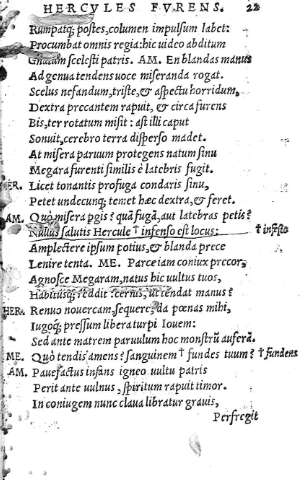 HERCVLES FVRENS. 22
Rumpatq; postes, columen impulsum labet:
Procumbat omnis regia: hic uideo abditum
Gnatum scelesti patris. AM. En blandas manus
Ad genua tendens uoce miseranda rogat.
Scelus nefandum, triste, & aspectu horridum,
Dextra precantem rapuit, & circa furens
Bis, ter rotatum misit: ast illi caput
Sonuit, cerebro terra disperso madet.
At misera paruum protegens natum sinu
Megara furenti similis è latebris fugit.
HER. Licet tonantis profuga condaris sinu,
Petet undecunq; temet hæc dextra, & feret.
AM. Quò misera pgis? quā fugā, aut latebras petis?
Nullus salutis Hercule † infenso est locus: † infesto
Amplectere ipsum potius, & blanda prece
Lenire tenta. ME. Parce iam coniux precor,
Agnosce Megaram, natus hic uultus tuos,
Habitusq; reddit: cernis, ut tendat manus?
HER. Teneo nouercam, sequere, da pœnas mihi,
Iugoq; pressum libera turpi Iouem:
Sed ante matrem paruulum hoc monstrū auferā.
ME. Quò tendis amens? sanguinem † fundes tuum? † fundens
AM. Pauefactus infans igneo uultu patris
Perit ante uulnus, spiritum rapuit timor.
In coniugem nunc claua libratur grauis,
Perfregit